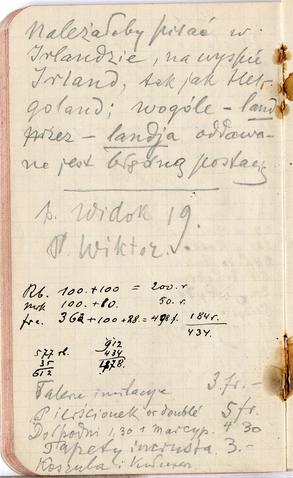 Należałoby pisać w
Irlandzie, na wyspie
Irland, tak jak Hel-
goland; wogóle – land
przez – landja oddawa-
ne jest błędną postacią
p. Widok 19.
P. Wiktor.
Rb. 100.+100 = 200.r
mrk 100.+10. 50.r.
frc. 362+100+28=492f. 184r.
434.
577 rb.
35
612
912
434
1878.
3.fr.–
Pierścionek or doublé 5fr.
1,30 + marcyp. 4 30
Tapety 3.–
Koszula i